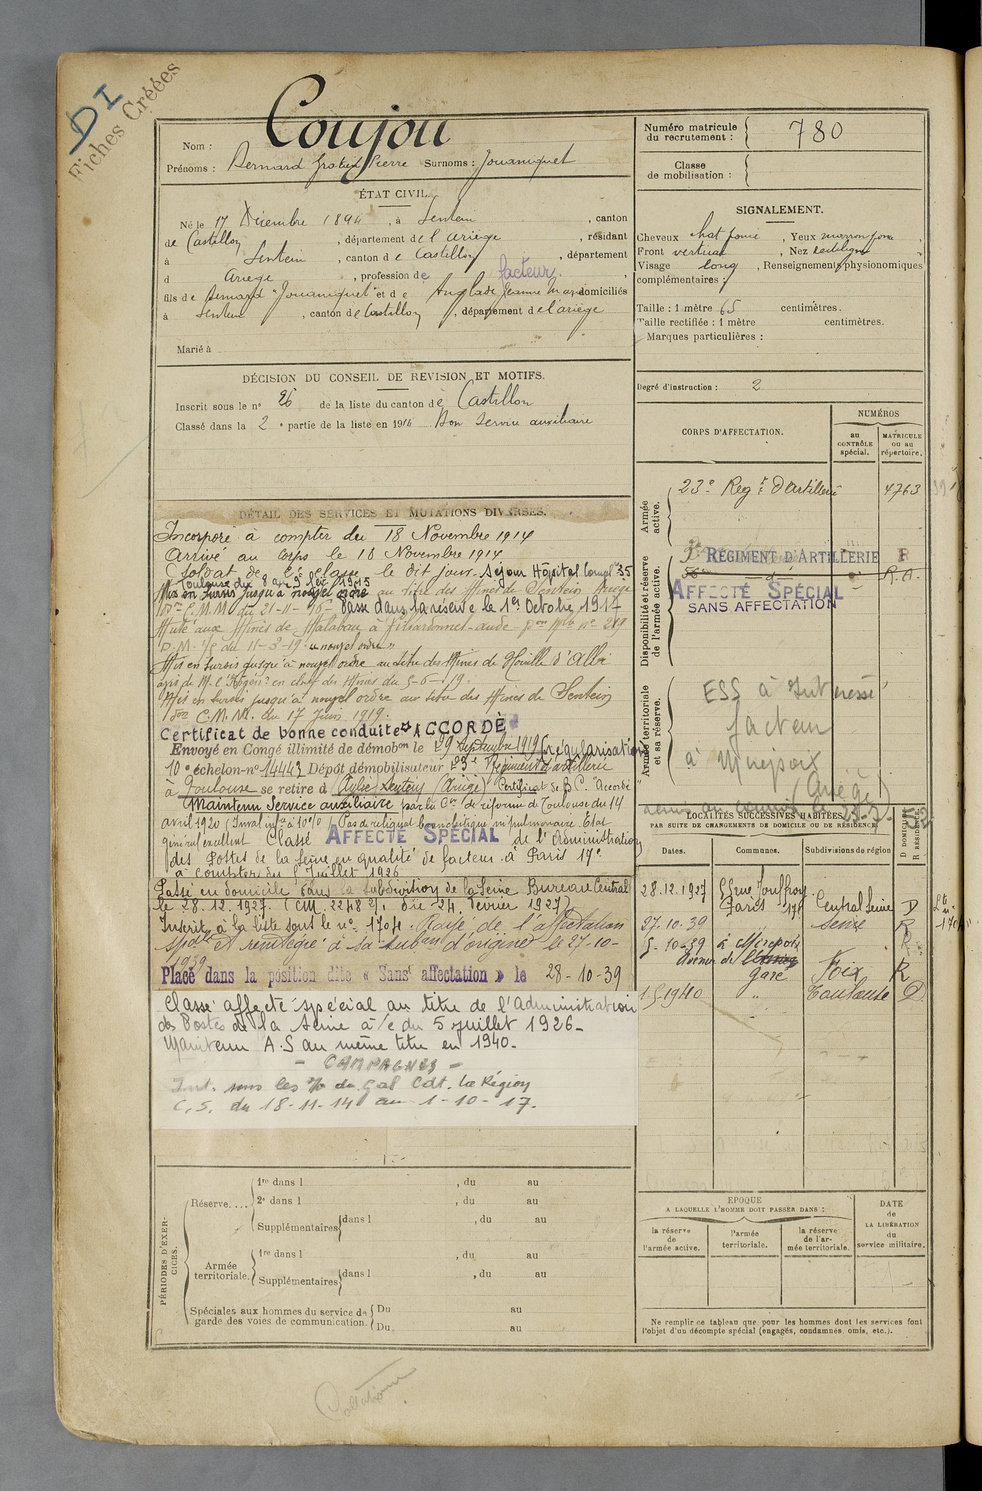 DI
Fiches Créées
Coujou
Nom :
Prénoms : Bernard Pierre Surnoms : Jouaniquet
ÉTAT CIVIL.
Né le 17 Décembre 1894, à Sentein, canton
de Castillon, département de l'Ariège, résidant
à Sentein, canton de Castillon, département
d Ariège, profession de facteur.
fils de Bernard "Jouaniquet" et de Anglade Jeanne domiciliés
à Sentein, canton de Castillon, département de l'ariège
Marié à
DÉCISION DU CONSEIL DE REVISION ET MOTIFS.
Inscrit sous le n° 26 de la liste du canton de Castillon
Classé dans la 2e partie de la liste en 1914 Bon service auxiliaire
DÉTAIL DES SERVICES ET MUTATIONS DIVERSES.
Incorporé à compter du 18 Novembre 1914
Arrivé au corps le 18 Novembre 1914
Soldat de 2e classe le dit jour. Séjour Hôpital Compl. 35
Toulouse du 8 au 9 1915
Mis en sursis jusqu'à nouvel ordre au titre des Mines de Sentein Ariège
C.M.M. du 21-11- Passé dans la réserve le 1er Octobre 1917
Muté aux Mines de à Villardonnel-aude-
D.M. du 11-2-19 "nouvel ordre"
Mis en sursis jusqu'à nouvel ordre au titre des Mines de Houille d'Albi
avis de M. l'Ingénr en chef des Mines du 5-6-19.
Mis en sursis jusqu'à nouvel ordre au titre des Mines de Sentein
C.M.M. du 17 Juin 1919.
Certificat de bonne conduite "ACCORDÉ"
Envoyé en Congé illimité de démobon le 29 septembre 1919 (régularisation)
10e échelon-n° 14443 Dépôt démobilisateur 23e Régiment d'artillerie
à Toulouse se retire à Sentein (Ariège) Certificat de B.C. "Accordé"
Maintenu Service auxiliaire par la Con de réforme de Toulouse du 14
avril 1920 Pas de reliquat bronchitique ni pulmonaire Etat
général excellent Classé AFFECTÉ SPÉCIAL de l'Administration
des Postes de la Seine en qualité de facteur à Paris 17e
à compter du Juillet 1926
Passé en domicile dans la subdivision de la Seine Bureau Central
le 28.12.1927. (CM. 2248 2/. du 24 Février 1927)
Inscrit à la liste sous le n° 1704. Rayé de l'affectation
spéciale et réintégré à sa subon d'origine le 27-10-
1939
Placé dans la position dite « Sans affectation » le 28-10-39
Classé affecté spécial au titre de l'Administration
des Postes de la Seine à/c du 5 juillet 1926-
Maintenu A.S au même titre en 1940-
- CAMPAGNES -
Int. sous les % du Gal Cdt. la Région
C.S. du 18-11-14 au 1-10-17.
PÉRIODES D'EXERCICES.
Réserve....
1re dans l , du au
2e dans l , du au
Supplémentaires dans l , du au
Armée territoriale.
1re dans l , du au
Supplémentaires dans l , du au
Spéciales aux hommes du service de garde des voies de communication.
Du au
Du au
Numéro matricule du recrutement : 780
Classe de mobilisation :
SIGNALEMENT.
Cheveux chat foncé, Yeux marron foncé,
Front vertical, Nez rectiligne
Visage long, Renseignements physionomiques
complémentaires :
Taille : 1 mètre 65 centimètres.
Taille rectifiée : 1 mètre centimètres.
Marques particulières :
Degré d'instruction : 2
CORPS D'AFFECTATION.
NUMÉROS
au CONTRÔLE spécial.
MATRICULE ou au répertoire.
Armée active.
23e Régt d'Artillerie 4763
Disponibilité et réserve de l'armée active.
RÉGIMENT D'ARTILLERIE
R.A.
AFFECTÉ SPÉCIAL
SANS AFFECTATION
Armée territoriale et sa réserve.
ESS à Intéressé
facteur
à Mirepoix
(Ariège)
LOCALITÉS SUCCESSIVES HABITÉES
PAR SUITE DE CHANGEMENTS DE DOMICILE OU DE RÉSIDENCE.
Dates. Communes. Subdivisions de région D DOMICILE R RÉSIDENCE.
28.12.1927 rue Jouffroy Paris 17e Central Seine D
27-10-39 " Seine R
5-10-39 à Mirepoix Avenue de la gare Foix R
1-5-1940 " Toulouse D
EPOQUE
A LAQUELLE L'HOMME DOIT PASSER DANS :
la réserve de l'armée active.
l'armée territoriale.
la réserve de l'armée territoriale.
DATE de LA LIBÉRATION du service militaire.
Ne remplir ce tableau que pour les hommes dont les services font
l'objet d'un décompte spécial (engagés, condamnés, omis, etc.).